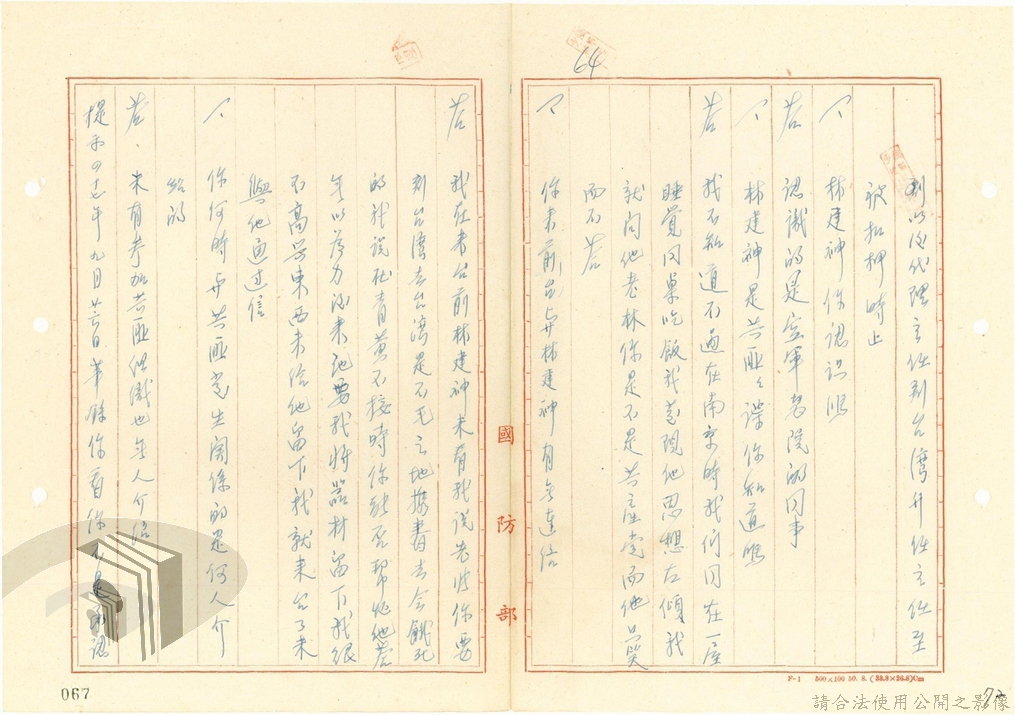 到以後代理主任到台灣升任主任至
被扣押時止
問 林建神你認識嗎
答 認識的是空軍老院的同事
問 林建神是共匪匪諜你知道嗎
答 我不知道不過在南京時我們同在一屋
睡覺同桌吃飯我發現他思想左傾我
就問他老林你是不是共產黨而他只笑
而不答
問 你未前與林建神有無連信
答 我在未台前林建神來有我說老
到台灣去台灣是不毛之地搬書去會餓死
的我說在青黃不接時你能否幫他答
無以為力後來他要我將器材留下我很
不高興東西未給他留下我就來台了未
與他通過信
問 你何時與共匪發生關係的是何人介
紹的
答 未有參加共匪組織也無人介紹
提示四十七年九月廿六日筆錄你看你不是承認
國防部
64
067
72
F-1 500×100 50. 8. (38.8×26.8)Cm
請合法使用公開之影像